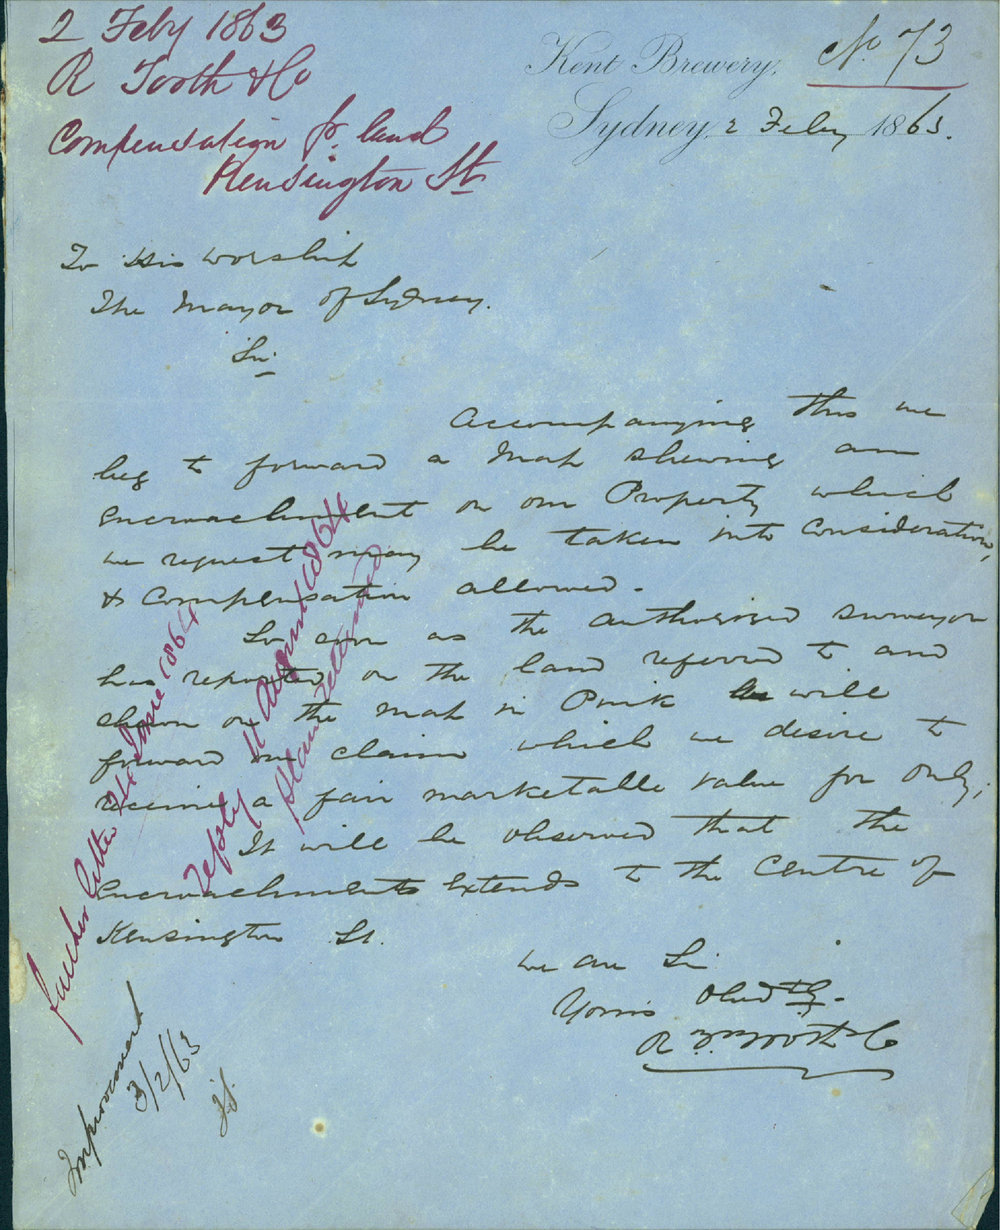 2 Feby 1863
R Tooth & Co
Compensation fr. land
Kensington St
No. 73
Kent Brewery,
Sydney, 2 Feby 1863.
To His Worship
The Mayor of Sydney.
Sir
Accompanying this we
beg to forward a Map shewing an
encroachment on our Property which
we request may be taken into consideration,
& compensation allowed.
So soon as the authorised surveyor
has reported on the land referred to and
shown on the map in Pink we will
forward our claim which we desire to
receive a fair marketable value for only,
It will be observed that the
Encroachments extends to the Centre of
Kensington St.
We are Sir
Yours Obedtly.
R & F Tooth & Co
further letter 24 June 1864
reply 11 August 1864
plan returned
Improvement
3/2/63